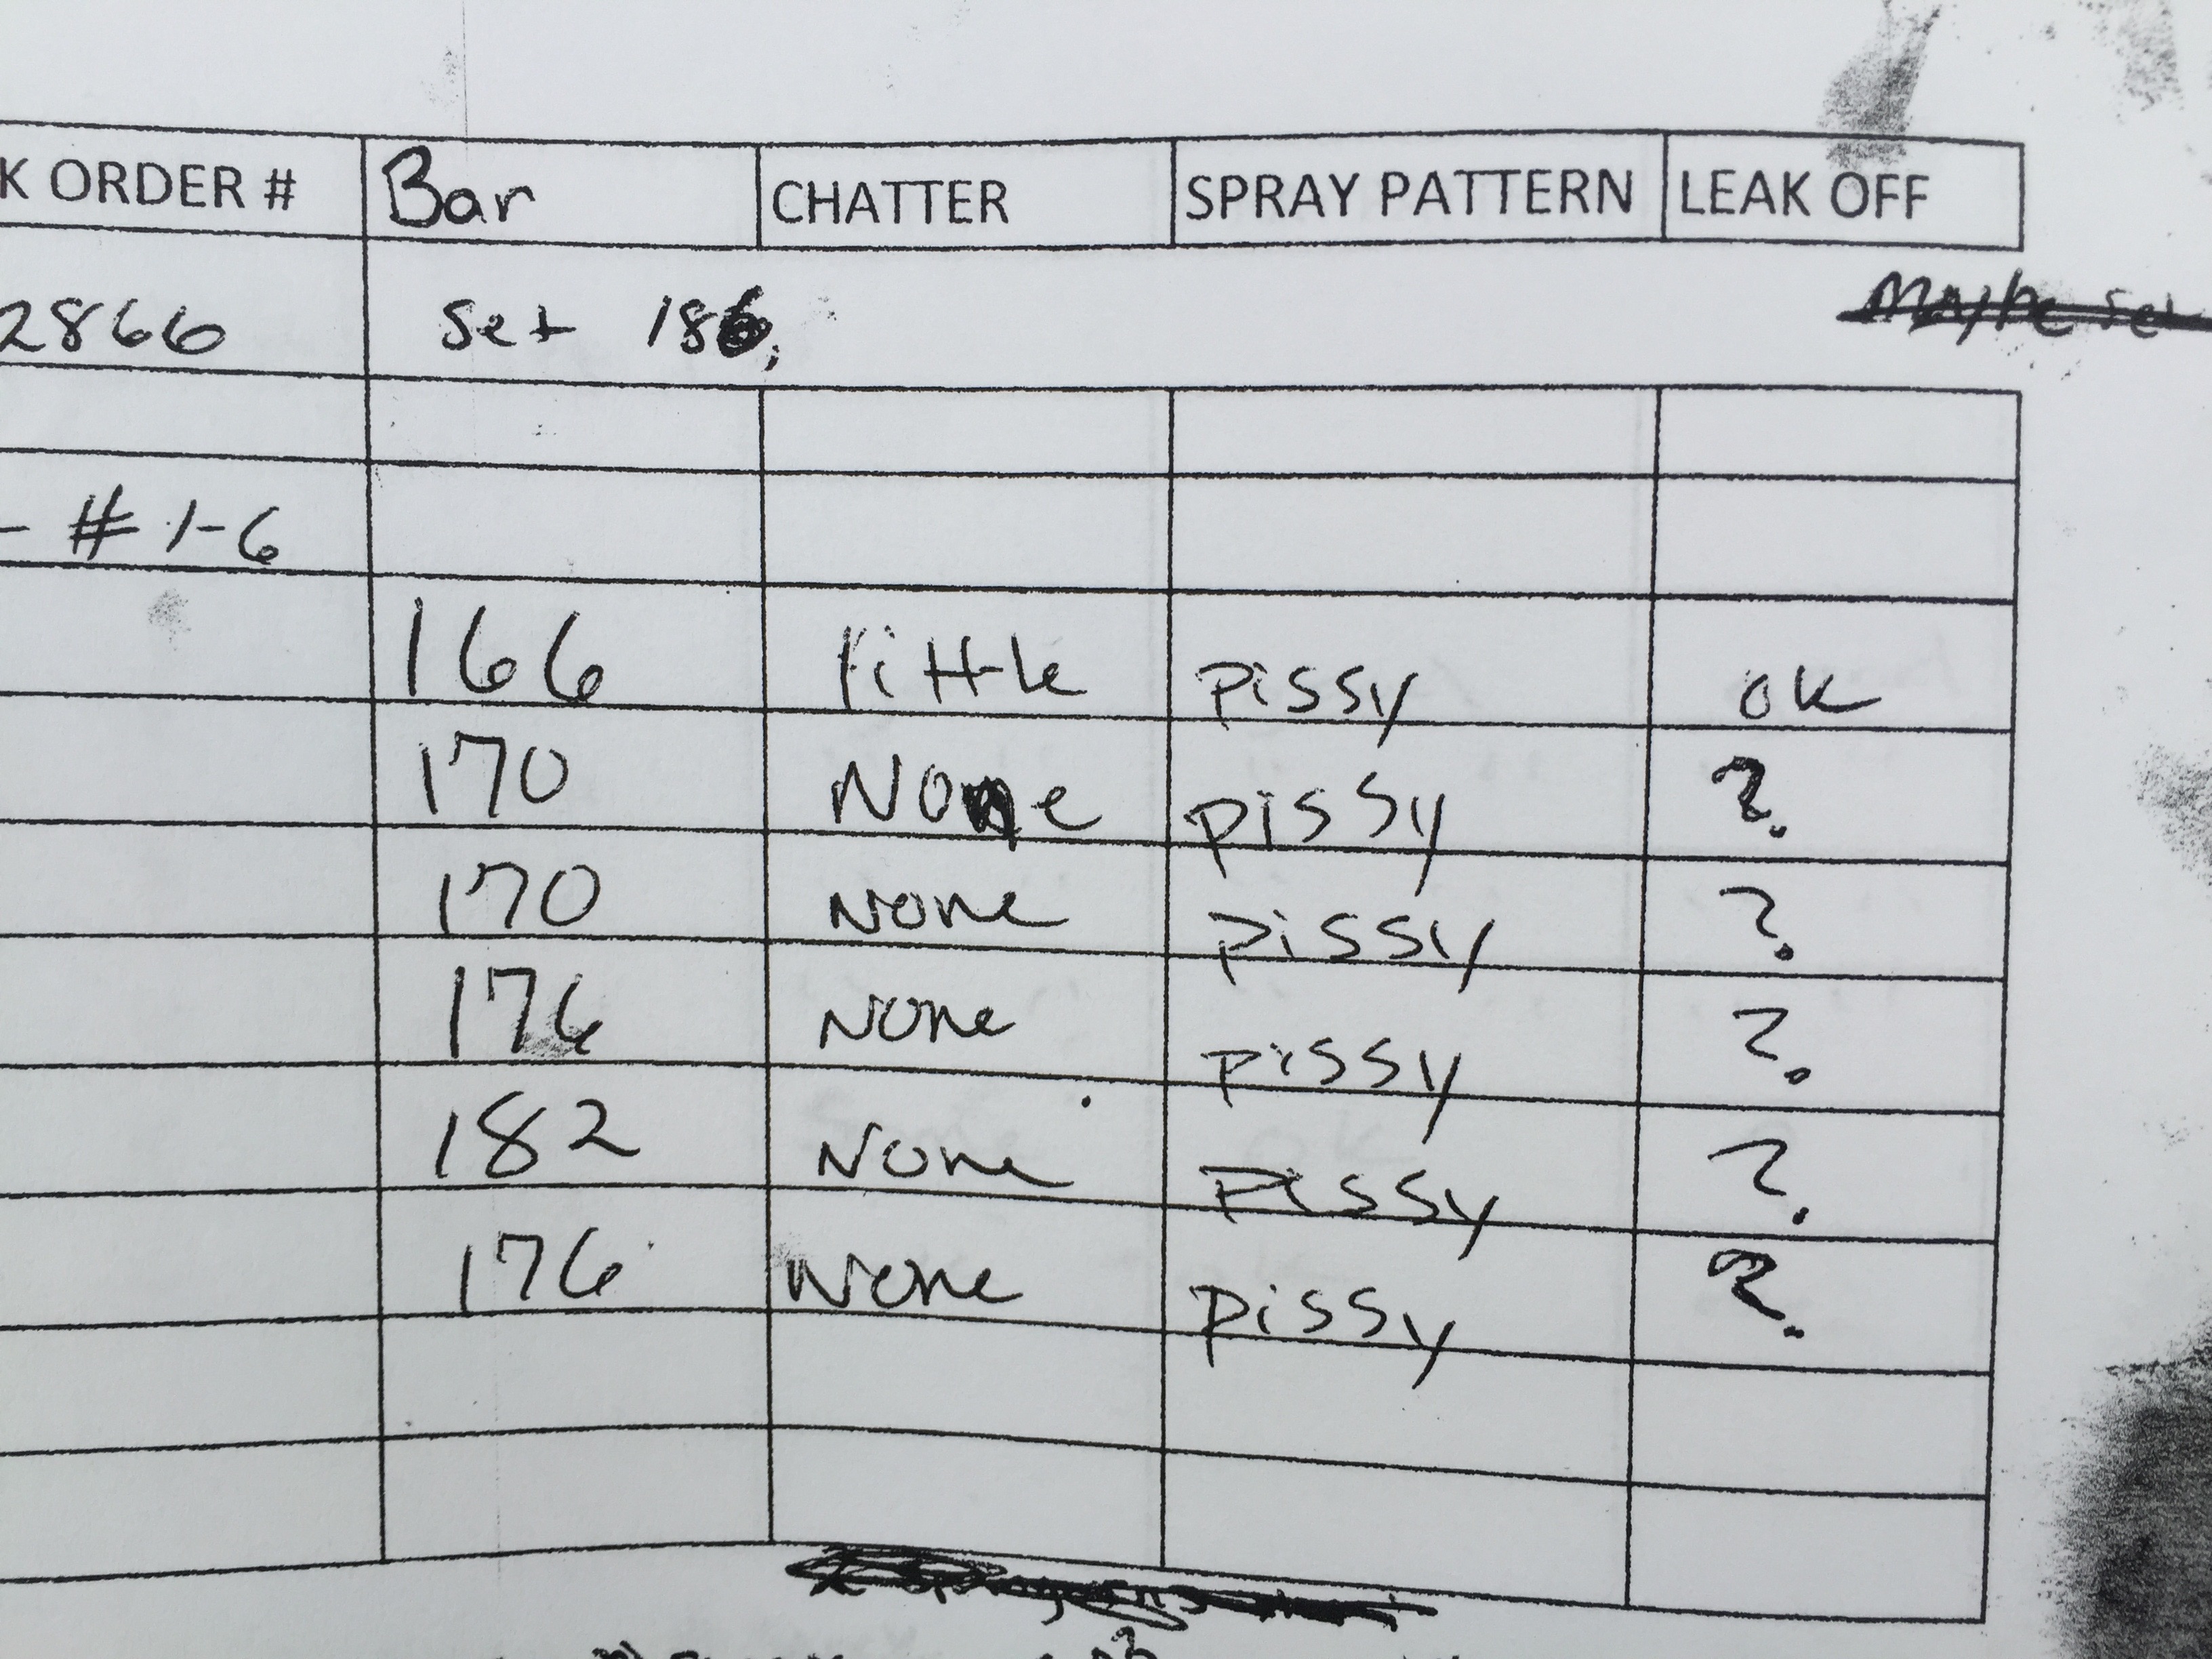 K ORDER # Bar CHATTER SPRAY PATTERN LEAK OFF
2866 Set 186,
- # 1-6
166 little pissy ok
170 None pissy ?
170 None pissy ?
176 None pissy ?
182 None pissy ?
176 None pissy ?